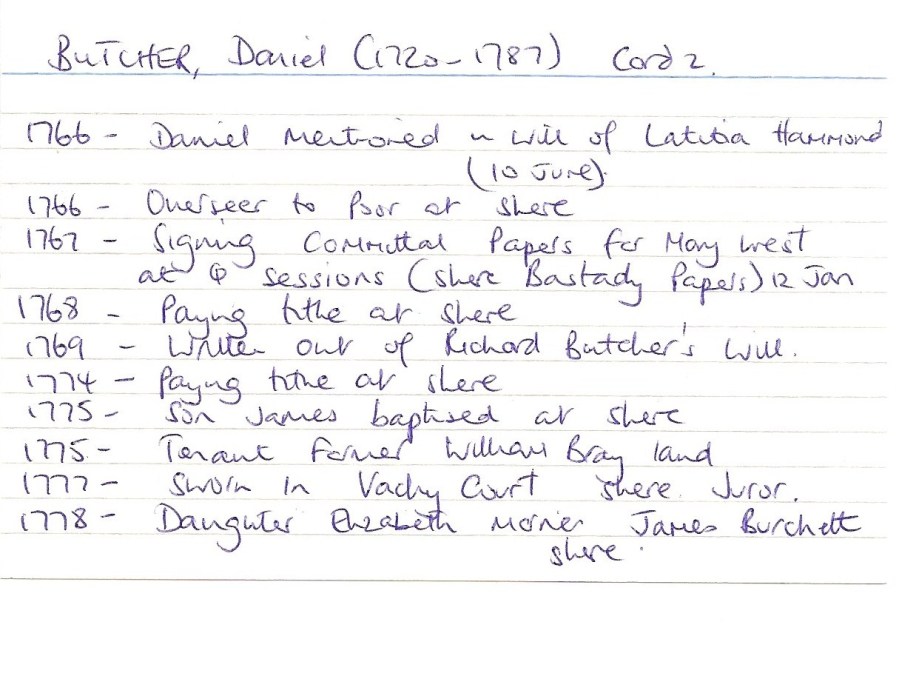 BUTCHER, Daniel (1720-1787) Card 2.
1766 - Daniel Mentioned in will of Latitia Hammond
(10 June).
1766 - Overseer to Poor at Shere
1767 - Signing Committal Papers for Mary West
at Q Sessions (Shere Bastady Papers) 12 Jan
1768 - Paying tithe at Shere
1769 - Written out of Richard Butcher's Will.
1774 - Paying tithe at Shere
1775 - Son James baptised at Shere
1775 - Tenant Farmer William Bray land
1777 - Sworn in Vachy Court Shere Juror.
1778 - Daughter Elizabeth Marries James Burchett
Shere.